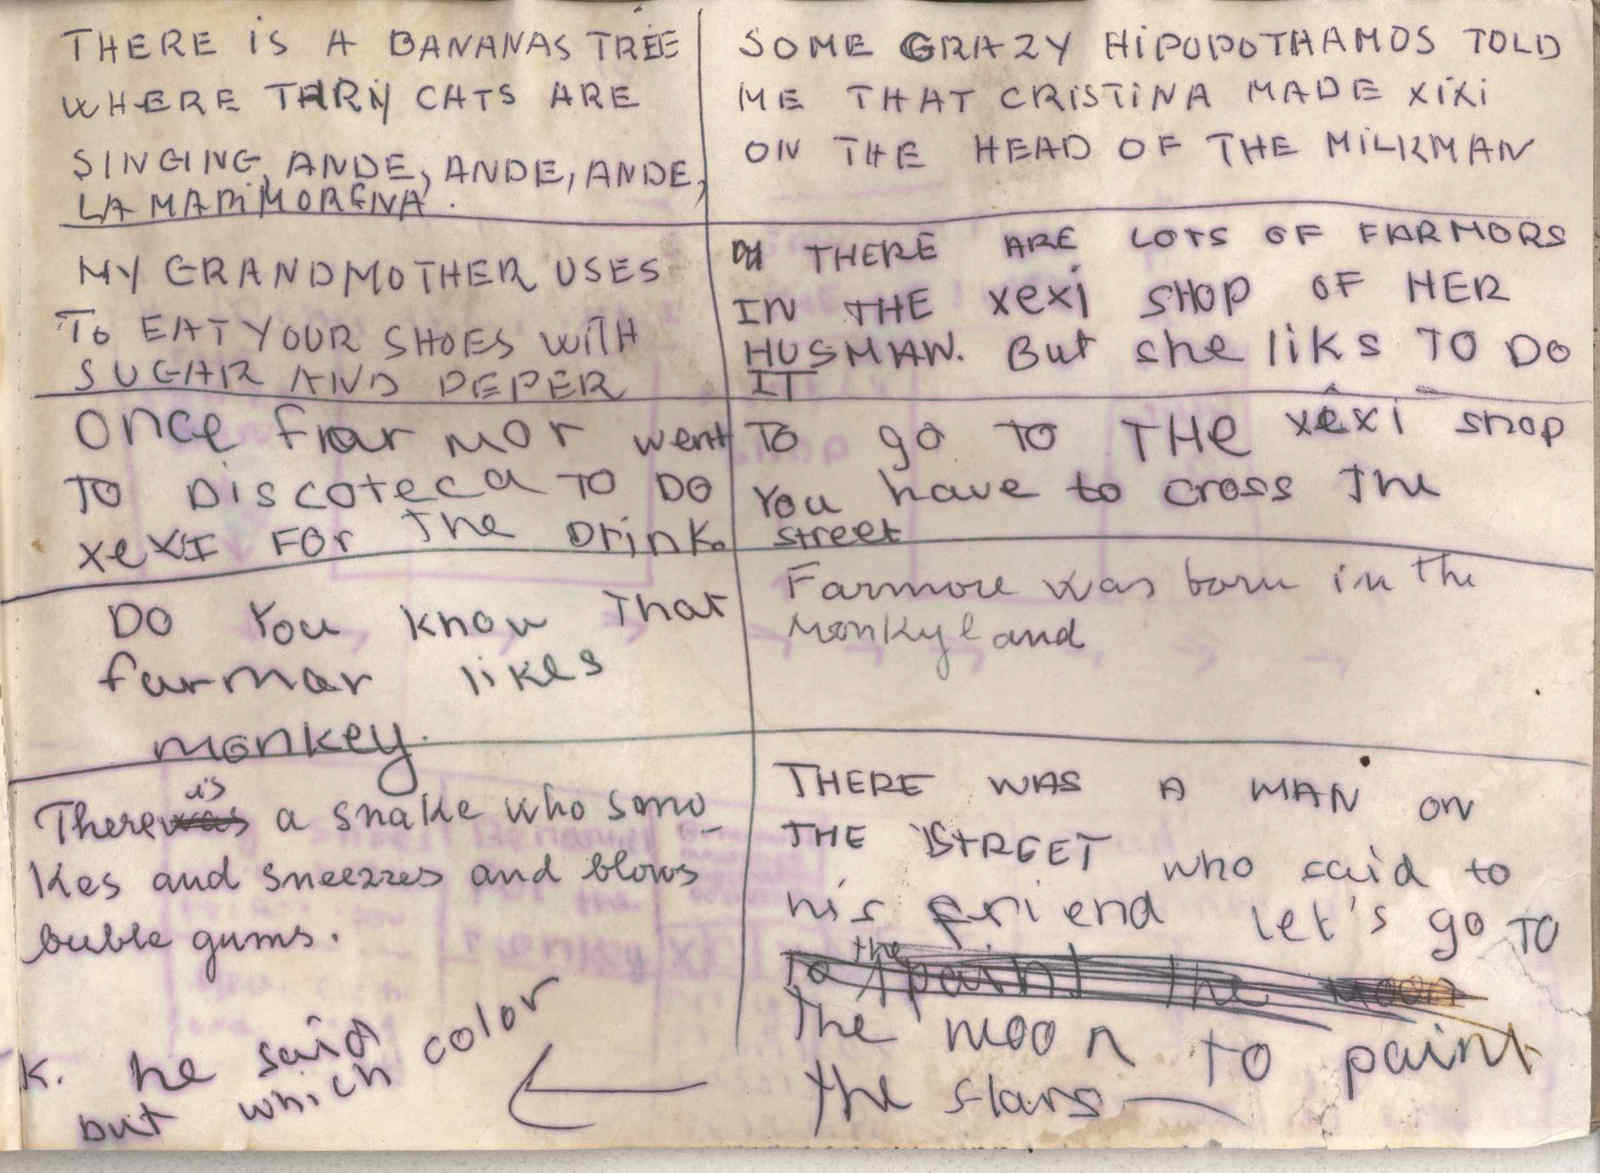 THERE IS A BANANAS TREE
WHERE CATS ARE
SINGING, ANDE, ANDE, ANDE,
LA MARIMORENA.
SOME GRAZY HIPOPOTHAMOS TOLD
ME THAT CRISTINA MADE XIXI
ON THE HEAD OF THE MILKMAN
MY GRANDMOTHER USES
TO EAT YOUR SHOES WITH
SUGAR AND PEPER
THERE ARE LOTS OF FARMORS
IN THE xexi SHOP OF HER
HUSMAN. But she liks TO DO
IT
Once frar mor went
TO DiscotecA TO DO
xexI FOr The Drink.
To go TO THe xexi shop
You have to cross The
street
DO You know That
farmar likes
monkey.
Farmore was born in the
Monkyland
There was is a snake who smo-
kes and sneezzes and blows
buble gums.
THERE WAS A MAN ON
THE STREET who said to
his friend let's go TO
To the paint the moon
The moon To paint
the stars
K. he said
but which color